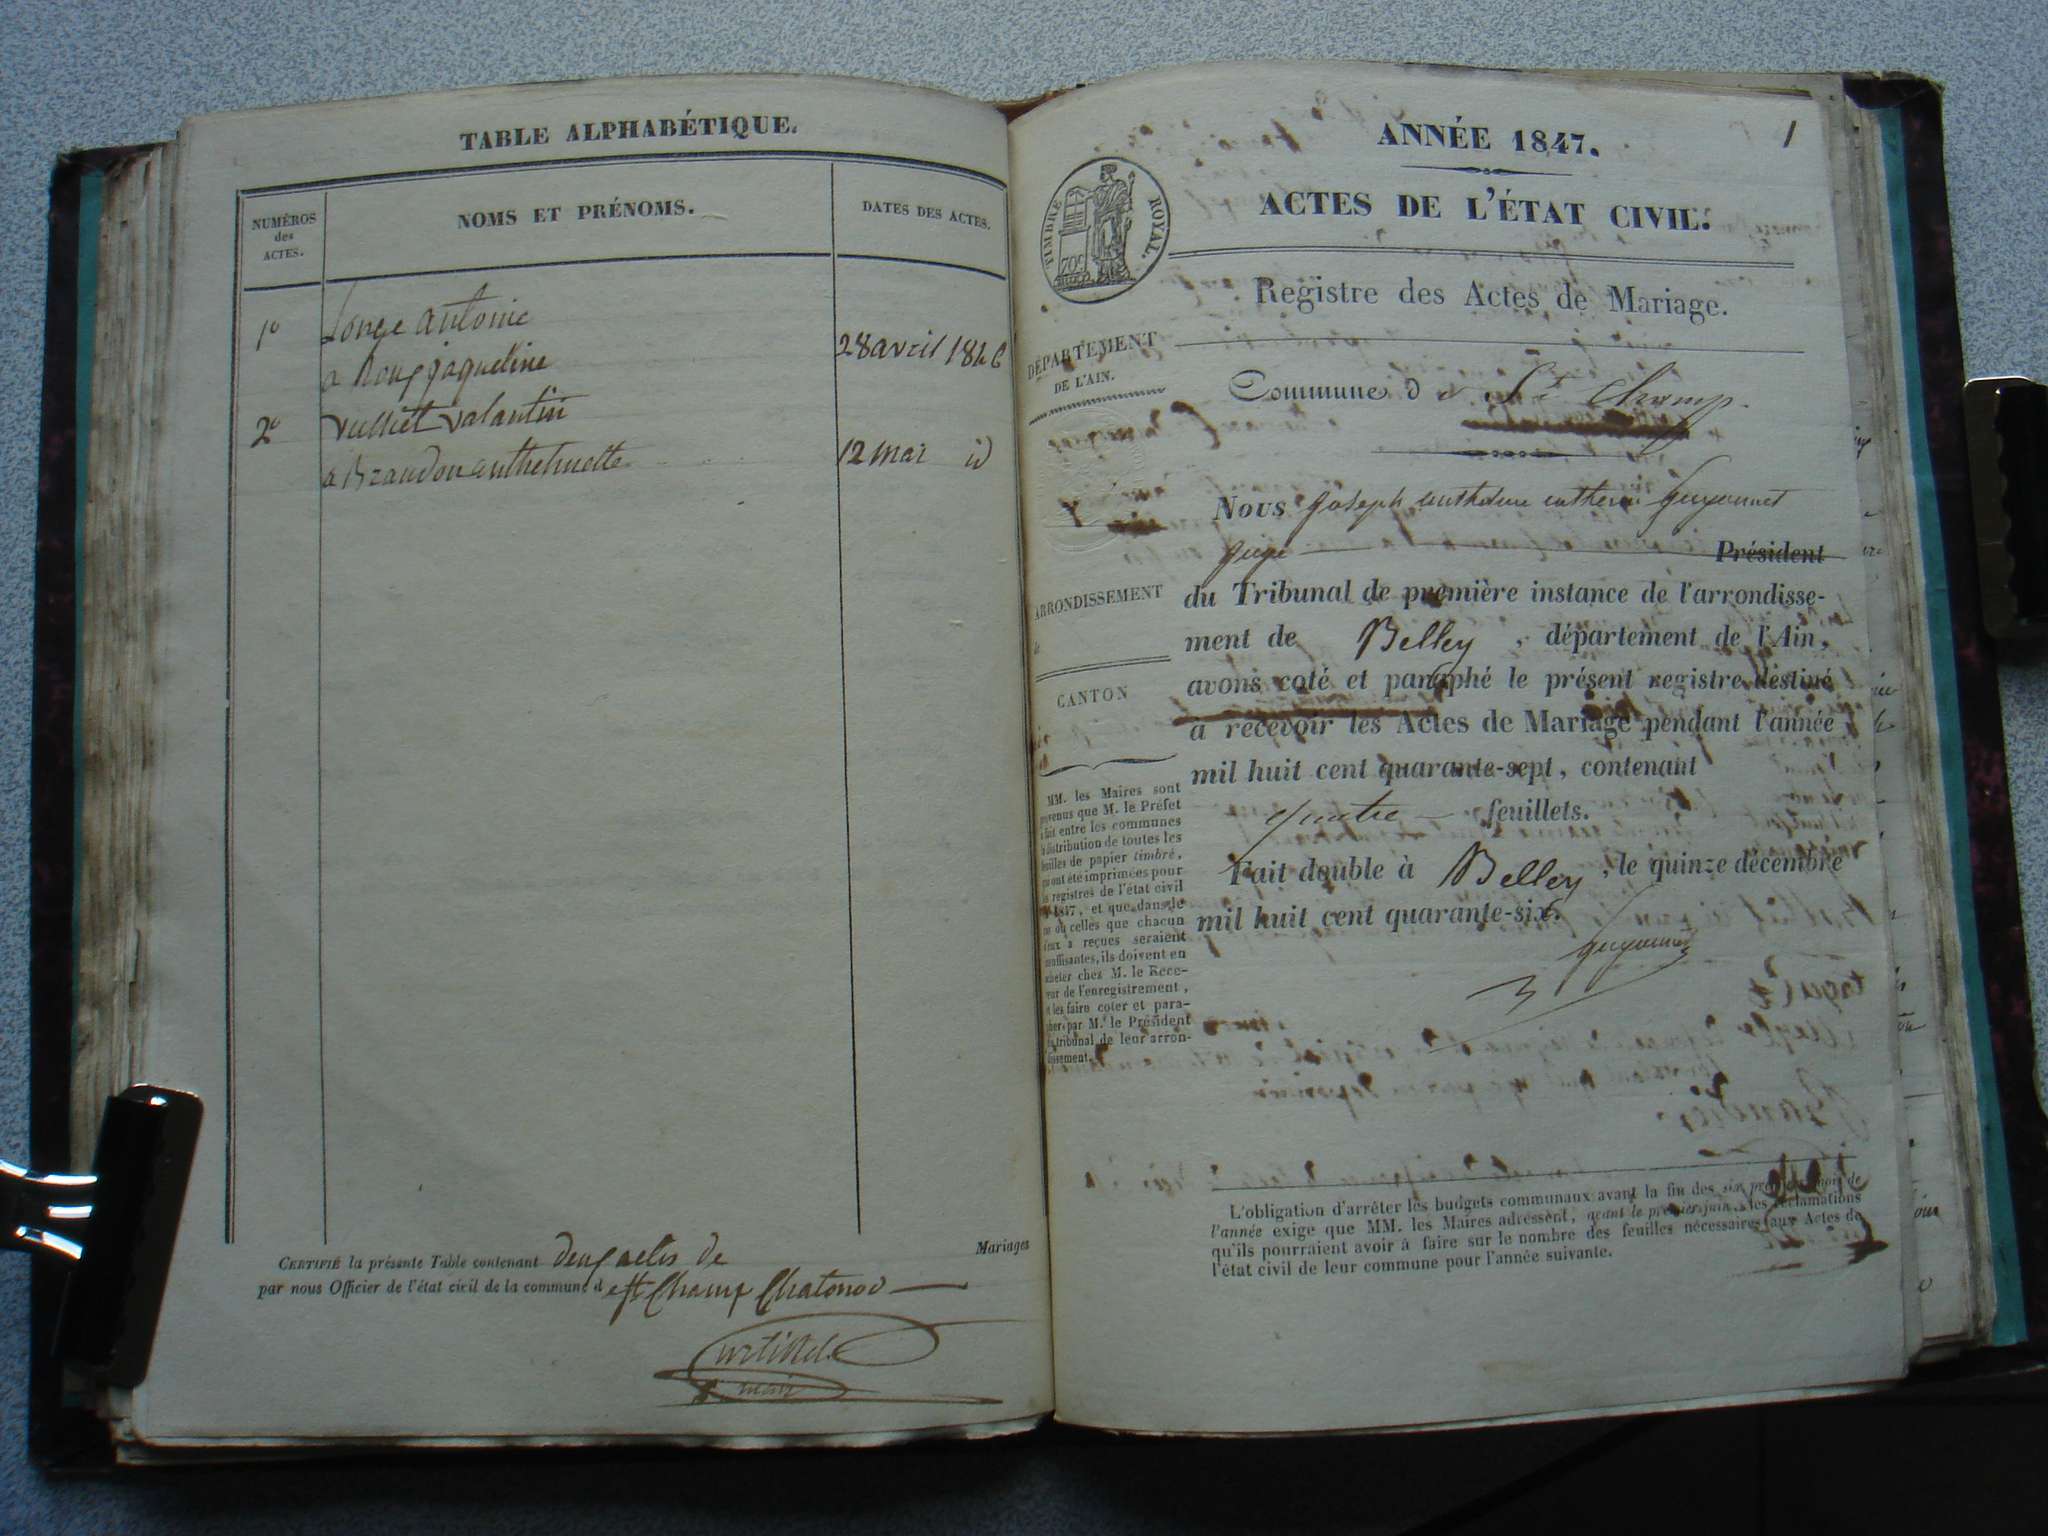 TABLE ALPHABÉTIQUE.
NUMÉROS
des
ACTES.
NOMS ET PRÉNOMS.
DATES DES ACTES.
1º Longe antoine
a Roux jaqueline 28 avril 1846
2º vulliet valantin
a Brandon anthelmette 12 mai id
CERTIFIÉ la présente Table contenant deux actes de Mariages
par nous Officier de l'état civil de la commune d est Champ Chatonod
maire
1
ANNÉE 1847.
ACTES DE L'ÉTAT CIVIL.
TIMBRE ROYAL.
70c
Registre des Actes de Mariage.
DÉPARTEMENT
DE L'AIN.
Commune d e St Champ
Nous joseph anthelme guyonnet
juge Président
du Tribunal de première instance de l'arrondisse-
ARRONDISSEMENT
ment de Belley, département de l'Ain,
avons coté et paraphé le présent registre destiné
CANTON
à recevoir les Actes de Mariage pendant l'année
mil huit cent quarante-sept, contenant
quatre feuillets.
Fait double à Belley, le quinze décembre
mil huit cent quarante-six.
guyonnet
MM. les Maires sont
prévenus que M. le Préfet
a fait entre les communes
la distribution de toutes les
feuilles de papier timbré,
qui ont été imprimées pour
les registres de l'état civil
de 1847, et que dans le
cas où celles que chacun
d'eux a reçues seraient
insuffisantes, ils doivent en
acheter chez M. le Rece-
veur de l'enregistrement,
et les faire coter et para-
pher par M. le Président
du tribunal de leur arron-
dissement.
L'obligation d'arrêter les budgets communaux avant la fin des six premiers mois de
l'année exige que MM. les Maires adressent, avant le premier juin, les réclamations
qu'ils pourraient avoir à faire sur le nombre des feuilles nécessaires aux Actes de
l'état civil de leur commune pour l'année suivante.